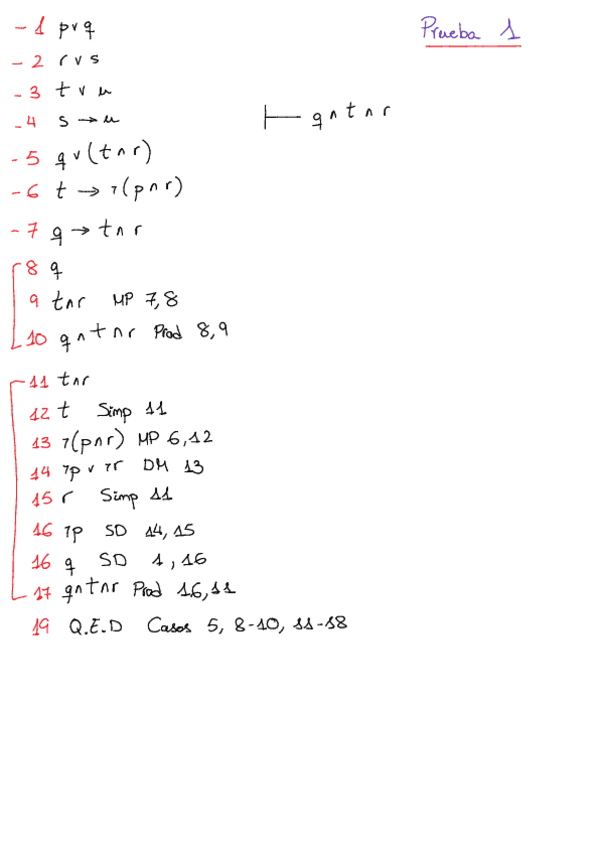 Prueba 1
-1 p∨q
-2 r∨s
-3 t∨u
-4 s→u
⊢ q∧t∧r
-5 q∨(t∧r)
-6 t→¬(p∧r)
-7 q→t∧r
8 q
9 t∧r MP 7,8
10 q∧t∧r Prod 8,9
11 t∧r
12 t Simp 11
13 ¬(p∧r) MP 6,12
14 ¬p∨¬r DM 13
15 r Simp 11
16 ¬p SD 14,15
16 q SD 1,16
17 q∧t∧r Prod 16,11
19 Q.E.D Casos 5, 8-10, 11-18